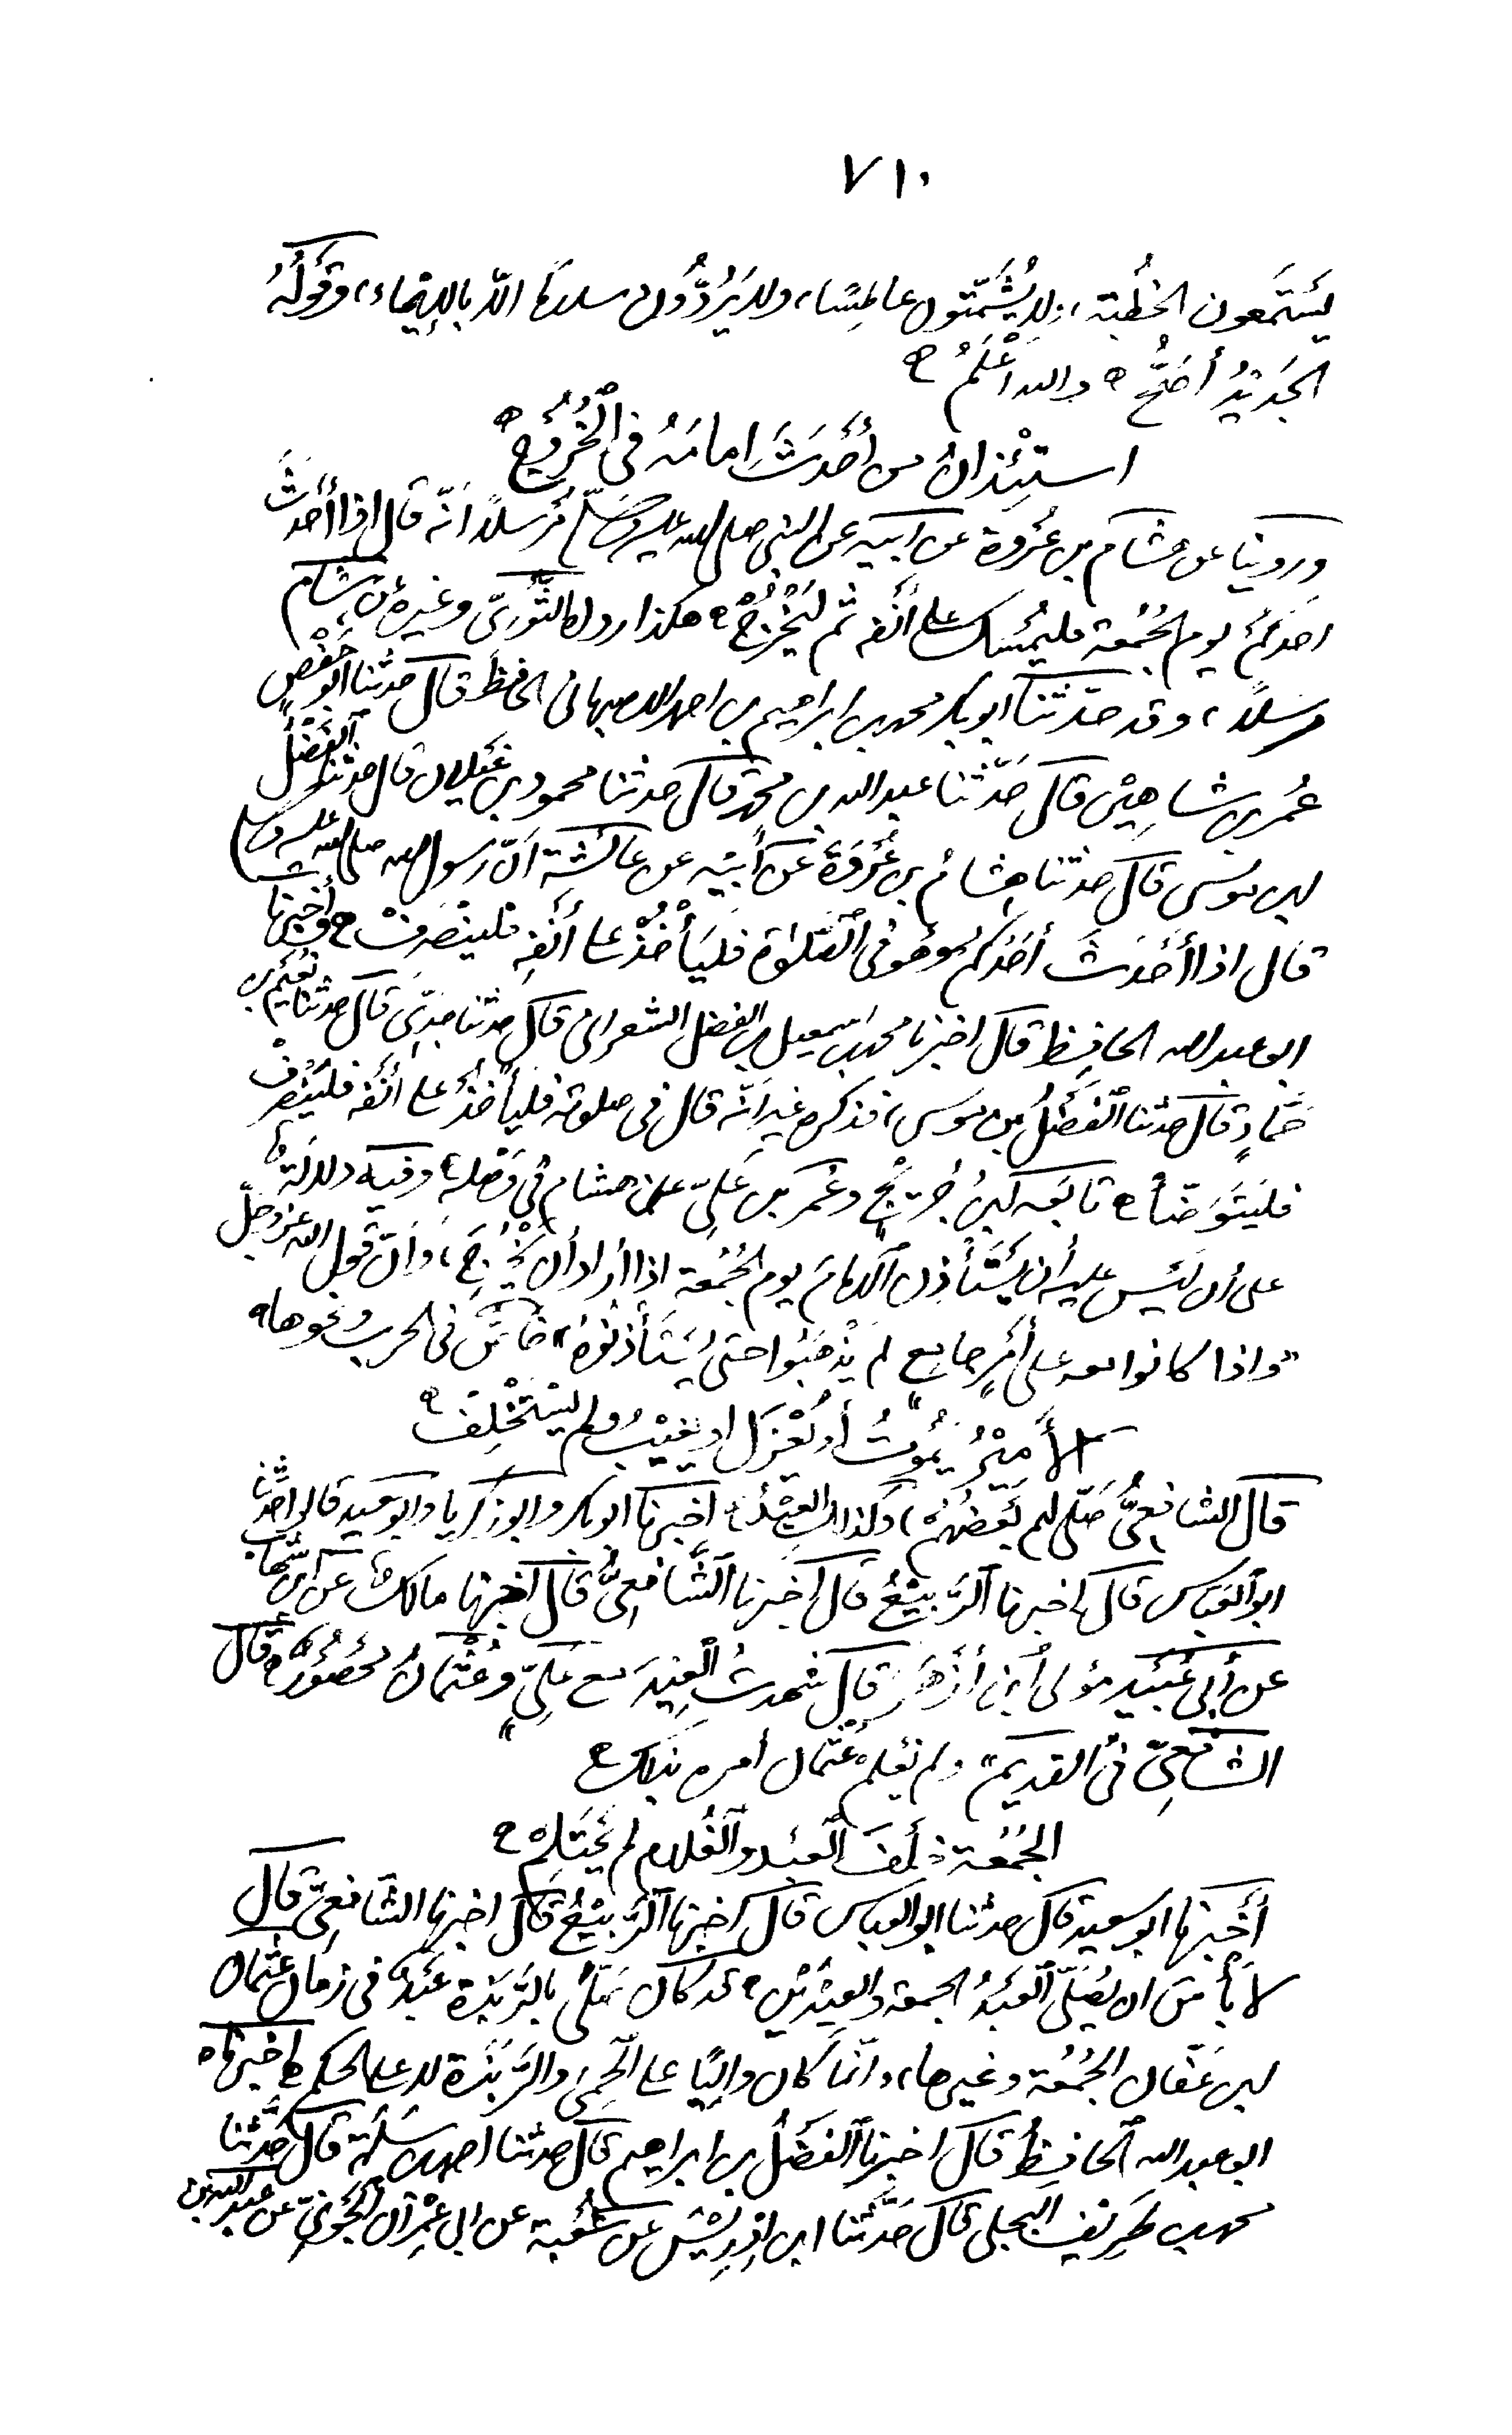 ٧١٠
يستمعون الخُطْبَة، ولا يُشَمِّتون عاطِسًا، ولا يَرُدُّون سلامًا الا بالايماء، وقولُهُ
الجَدِيْدُ أصَحُّ ه والله أَعْلَمُ ه
استِئْذانُ من أَحْدَثَ امامَهُ فى الْخُرُوْجِ ه
ورَوينا عن هشام بن عُرْوَة عن ابيه عن النبى صلى الله عليه وسلّم مُرسلاً انّه قال اذا أَحْدَثَ
احدكُم يوم الجُمُعة فليُمْسِك على أَنْفه ثم لْيَخْرُجْ ه هكذا رواه الثَّوْرِىّ وغيره عن هشام
مرسَلاً، وقد حدّثنا ابو بكر محمد بن ابراهيم بن احمد الاصبهانى الحافظ قال حدثنا ابو حَفْصٍ
عُمر بن شاهِيْن قال حَدّثنا عبد الله بن محمّد قال حدثنا محمود بن غَيْلان قال حدثنا الفَضْلُ
بن موسى قال حدثنا هِشامُ بن عُرْوَةَ عن أَبيْه عن عائشة انّ رسول الله صلى الله عليه وسلم
قال اذا أَحْدَثَ أَحَدُكم وهو فى الصَّلٰوة فليَأْخُذْ على أَنْفِه فلينْصَرِفْ ه وأخبرنا
ابو عبد الله الحافِظ قال اخبرنا محمد بن اسمعيل بن الفضل الشعرانى قال حدثنا جدّى قال حدثنا نُعَيْم بن
حَمّادٍ قال حدثنا الْفَضْلُ بن موسى، فذكره غير انّه قال فى صلوته فليأخُذْ على أَنْفه فليَنْصَرِفْ
فليَتَوَضّأ ه تابَعه ابنُ جُرَيْجٍ وعُمر بن عَلِىّ عن هشام فى وَصْلِه، وفيه دلالَةٌ
على أن لَيْس عليه أن يَسْتَأْذِن الامامَ يوم الجُمُعة اذا أراد أن يَخْرُجَ، وانّ قول الله عزّ وجلّ
"واذا كانوا معه على أَمْرٍ جامِعٍ لم يَذْهَبُوا حتى يَسْتَأْذِنُوْهُ" خاصٌّ فى الحرب ونحوها ه
الأَمِيْرُ يَمُوْتُ أو يُعْزَل او يَغِيْبُ ولم يَسْتَخْلِفْ ه
قال الشافِعِىُّ صَلّى لهم بَعْضُهُمْ، وكذا العِيْدُ، اخبرنا ابو بكر وابو زكريا وابو سعيد قالوا حدّثنا
ابو العَبّاس قال اخبرنا الرَّبِيْعُ قال أخبرنا الشَّافِعِىُّ قال اخبرنا مالك عن ابن شهاب
عن أبى عُبَيْد مَوْلى ابْن أَزْهَر قال شهدتُ العيدَ مع عَلِىّ وعُثْمانُ مَحْصُوْرٌ ه قال
الشافِعِىّ فى القديم "ولم نعلم عُثمان أمره بذلك ه
الجُمُعَة خَلْفَ العَبْد والغُلام لم يَحْتَلِمْ ه
أَخْبرنا ابو سعيد قال حدثنا ابو العباس قال اخبرنا الرَّبِيْعُ قال اخبرنا الشّافعىّ قال
لا بأسَ ان يُصَلّى العَبْدُ الجمعة والعِيْدَيْنِ ه قد كان يُصَلّى بالرَّبَذَة عَبْدٌ فى زمان عثمان
بن عَفّان الجُمُعَة وغيرها، وانّما كان والِيًا على الحِمى، والرَّبَذة لا على الحكم ه اخبرناه
ابو عبد الله الحافِظُ قال اخبرنا الفَضْلُ بن ابراهيم قال حدثنا احمد بن سَلَمَة قال حَدّثنا
محمد بن طَرِيف البجلى قال حَدّثنا ابن اِدْرِيْسَ عن شُعْبة عن ابى عِمْران الجَوْنِىّ عن عبد الله بن